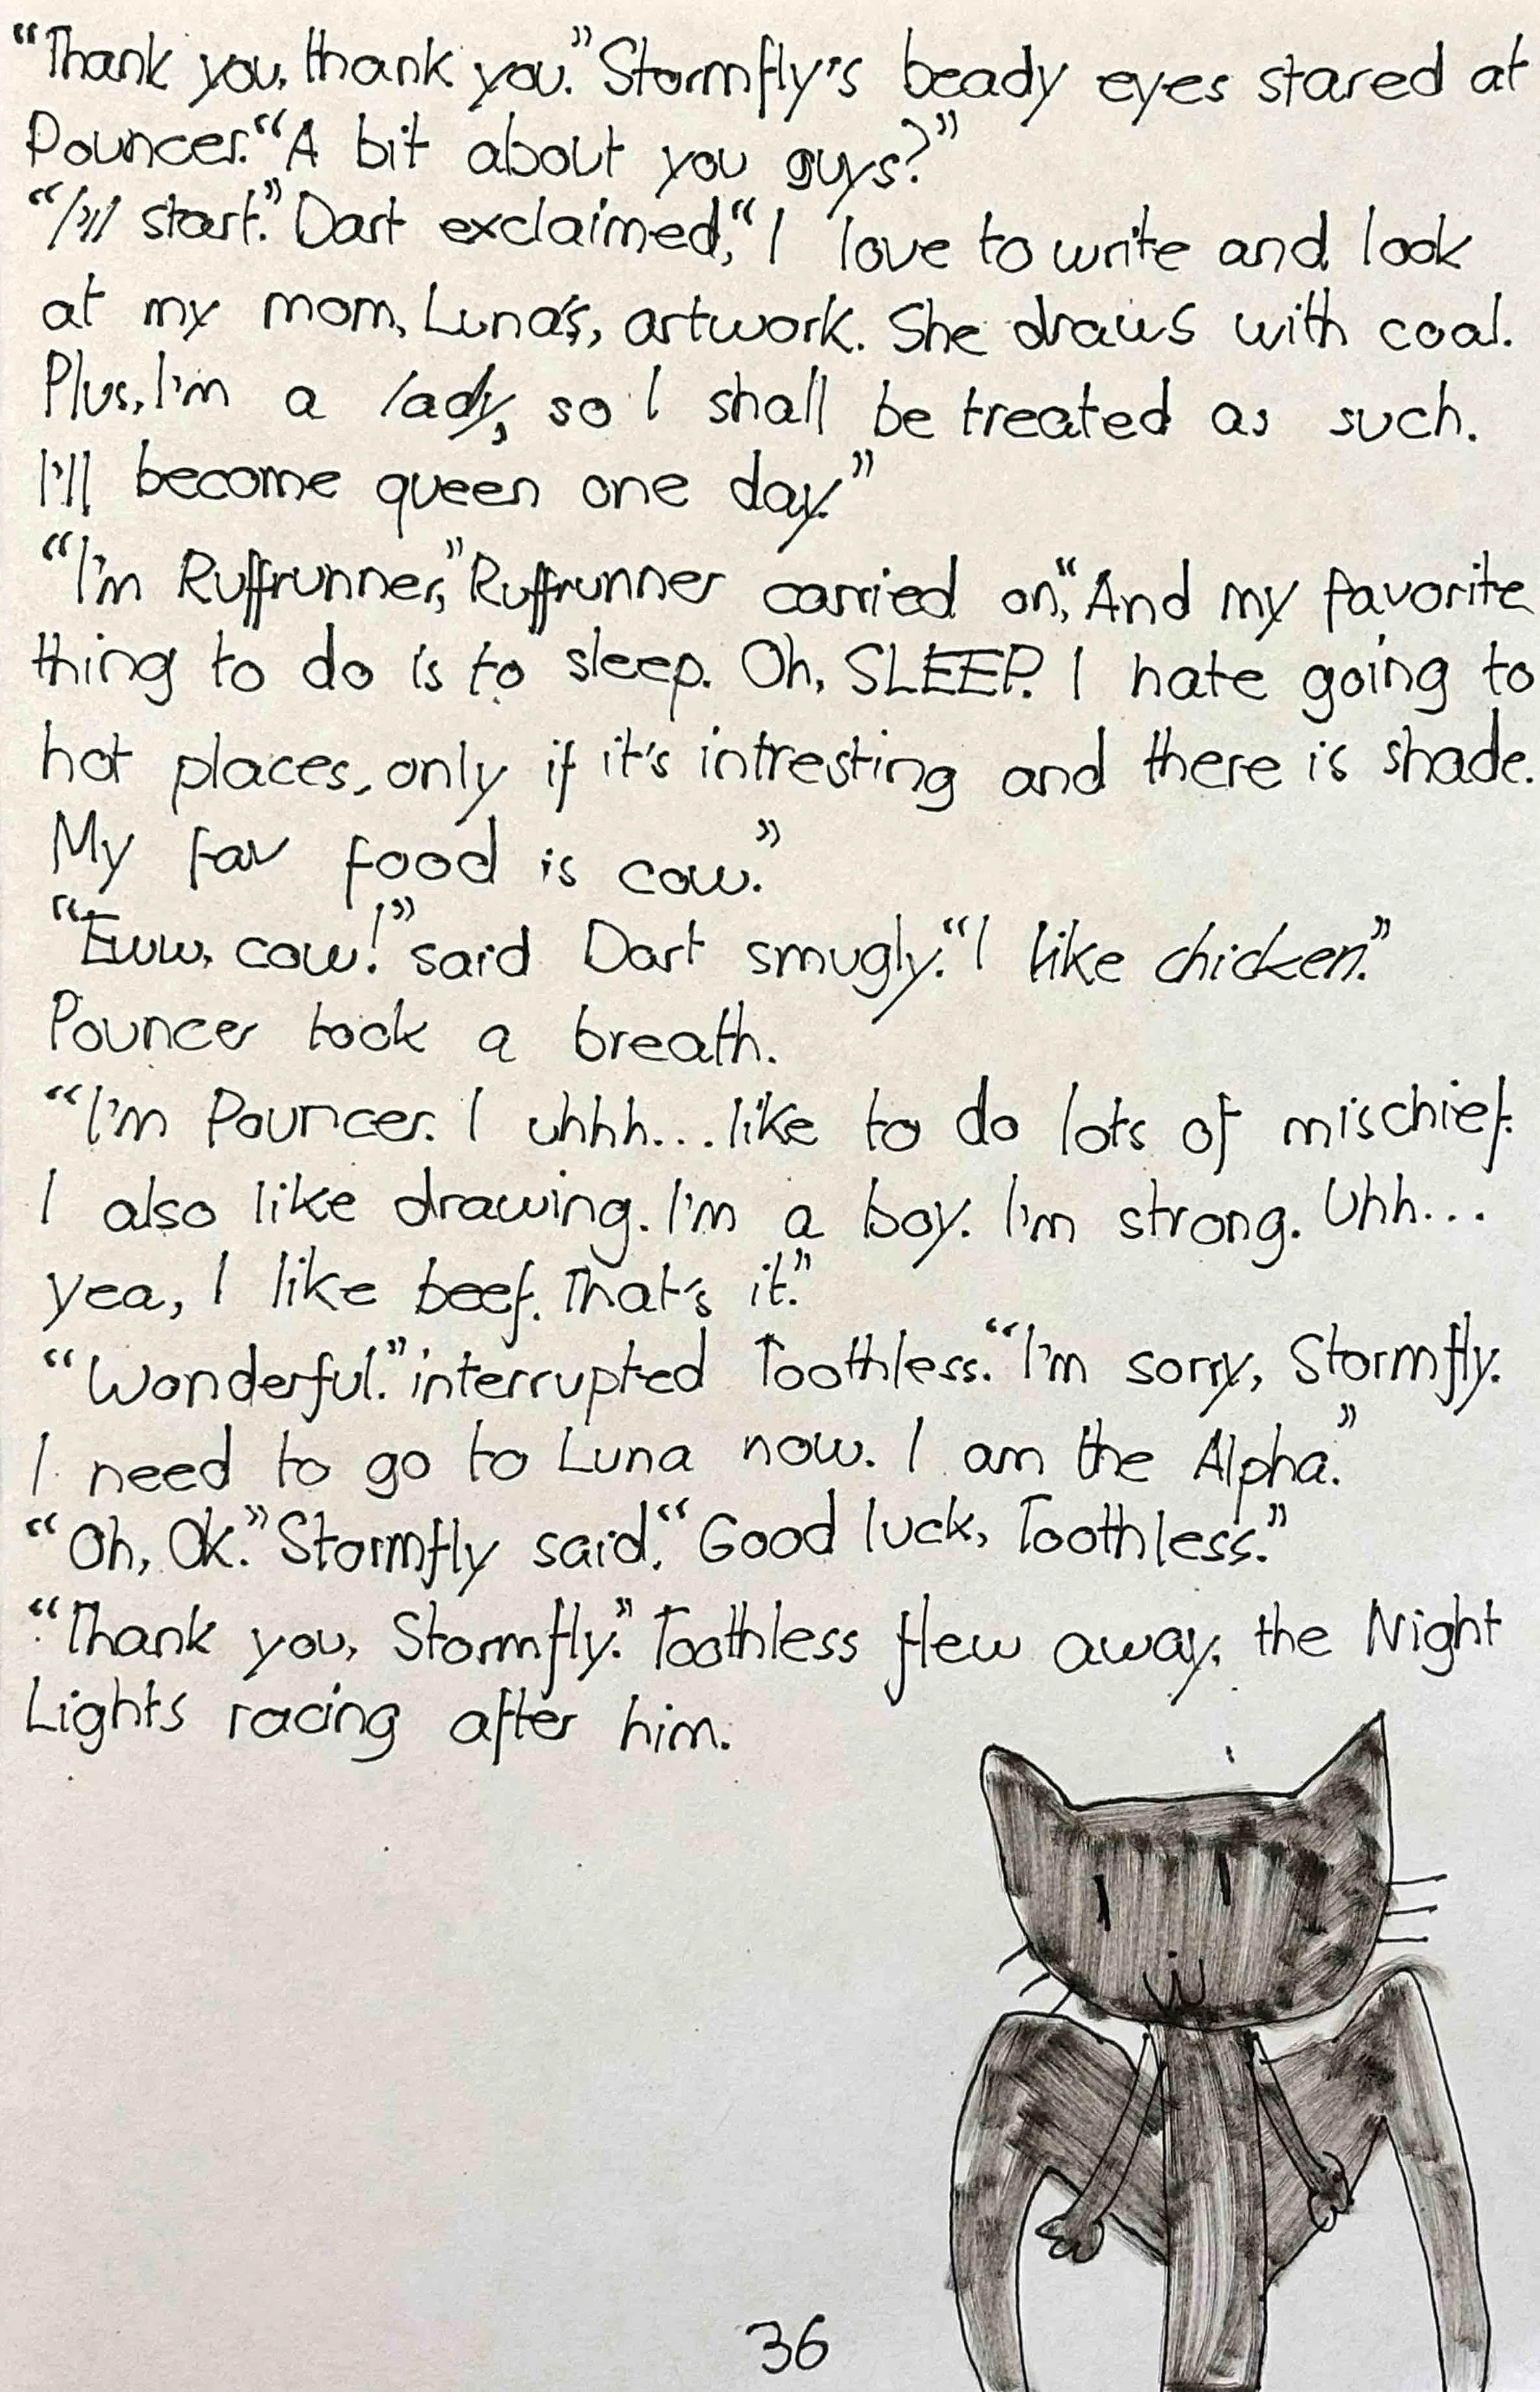 “Thank you, thank you.” Stormfly's beady eyes stared at
Pouncer. “A bit about you guys?”
“I'll start.” Dart exclaimed, “I love to write and look
at my mom, Luna's, artwork. She draws with coal.
Plus, I'm a lady, so I shall be treated as such.
I'll become queen one day.”
“I'm Ruffrunner,” Ruffrunner carried on, “And my favorite
thing to do is to sleep. Oh, SLEEP. I hate going to
hot places, only if it's intresting and there is shade.
My fav food is cow.”
“Eww, cow!” said Dart smugly. “I like chicken.”
Pouncer took a breath.
“I'm Pouncer. I uhhh... like to do lots of mischief.
I also like drawing. I'm a boy. I'm strong. Uhh...
yea, I like beef. That's it.”
“Wonderful.” interrupted Toothless. “I'm sorry, Stormfly.
I need to go to Luna now. I am the Alpha.”
“Oh, Ok.” Stormfly said. “Good luck, Toothless.”
“Thank you, Stormfly.” Toothless flew away, the Night
Lights racing after him.
36